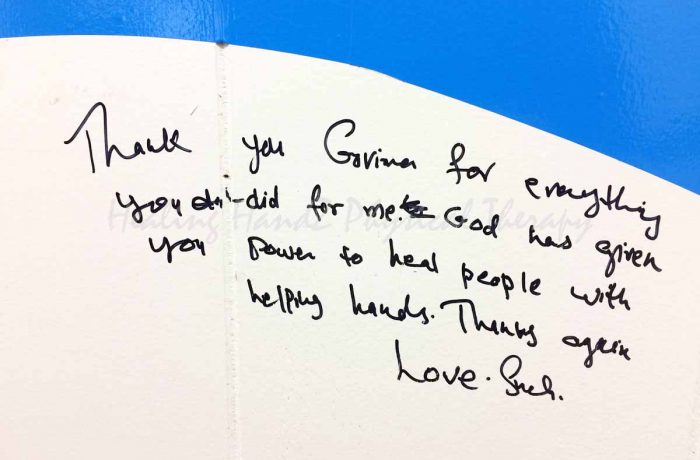 Thank you Garima for everything
you did for me. God has given
you power to heal people with
helping hands. Thanks again
Love.
Healing Hands Physical Therapy